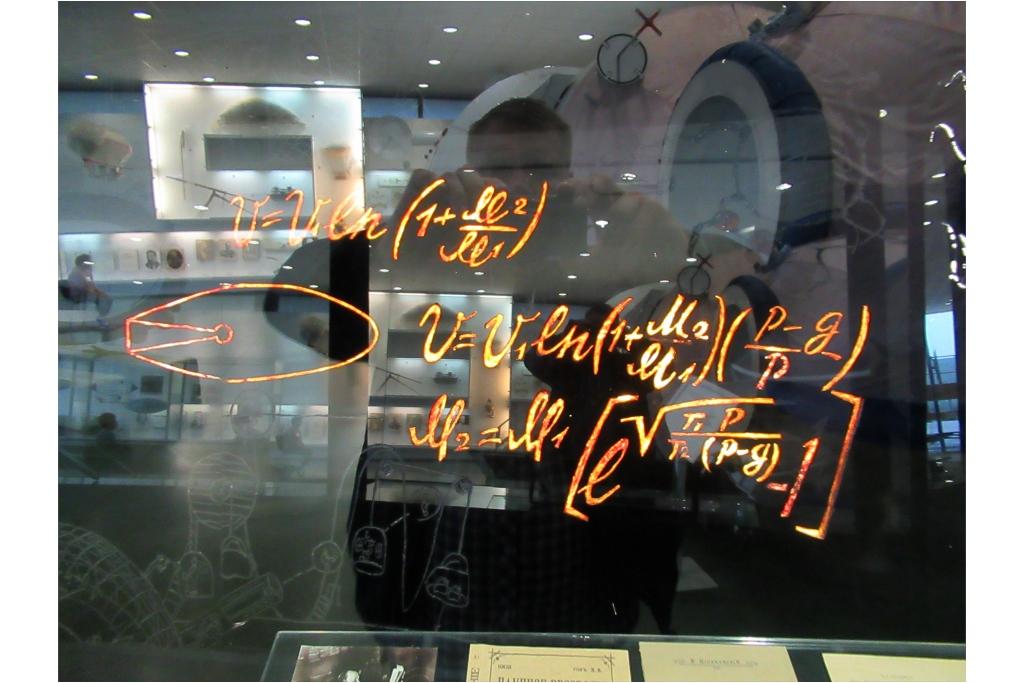 V=V₁ln(1+M₂/M₁)
V=V₁ln(1+M₂/M₁)(p-g/p)
M₂=M₁[e√(T₁ p/T₂ (p-g)) -1]